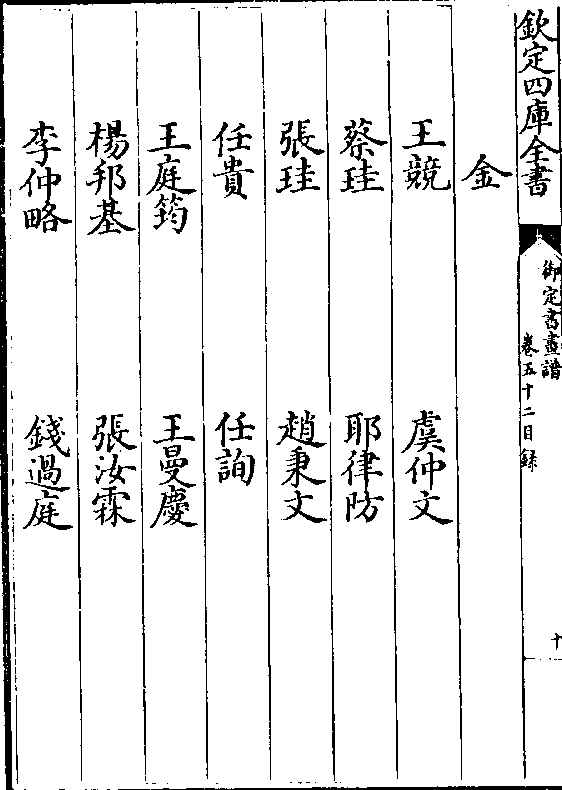 欽定四庫全書
御定書畫譜
卷五十二目録
十
金
王競 虞仲文
蔡珪 耶律防
張珪 趙秉文
任貴 任詢
王庭筠 王曼慶
楊邦基 張汝霖
李仲略 錢過庭